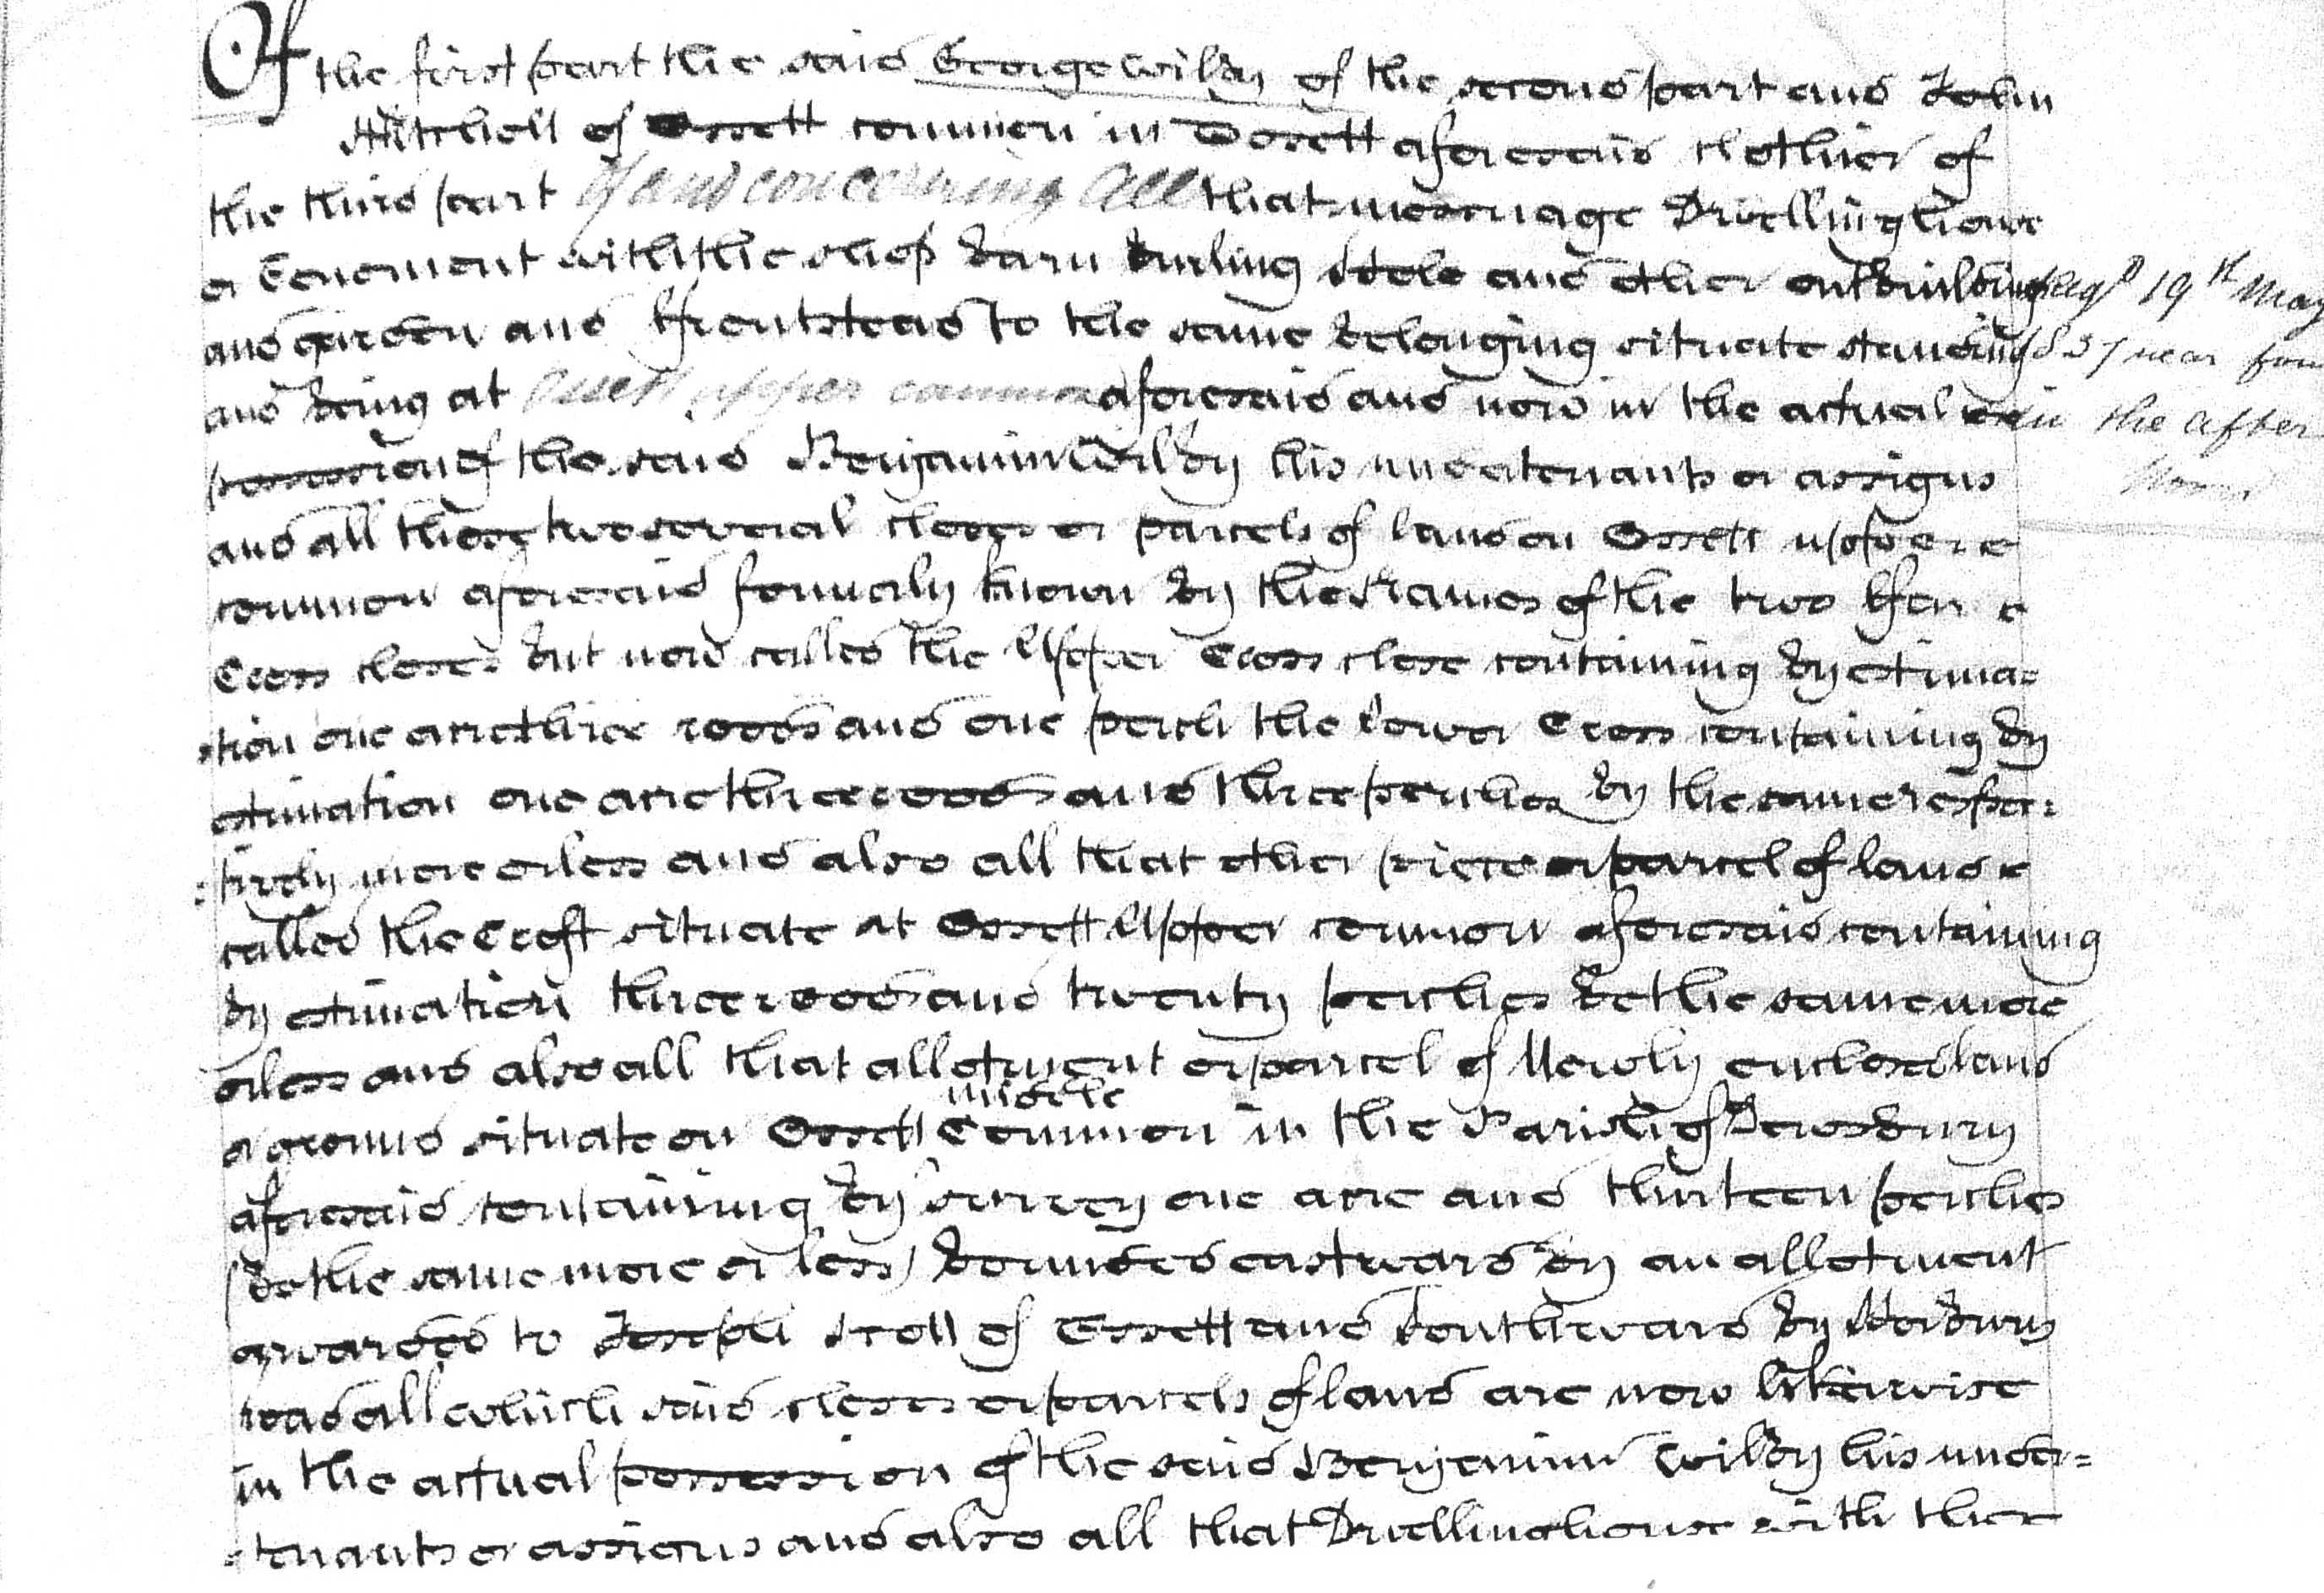 Of the first part the said George Wilby of the second part and John
Mitchell of Ossett common in Ossett aforesaid clothier of
the third part of and concerning All that messuage Dwellinghouse
or Tenement with the shop barn burling and other outbuildings
and garden and ffrontstead to the same belonging situate standing
and being at Ossett upper common aforesaid and now in the actual
possession of the said Benjamin Wilby his undertenants or assigns
and all those two several closes or parcels of land on Ossett upper
common aforesaid formerly known by the Names of the two ffar
Cross closes but now called the Upper Cross close containing by estima=
=tion one acre three roods and one perch the Lower Cross containing by
estimation one acre three roods and three perches by the same respec=
=tively more or less and also all that other piece or parcel of land
called the Croft situate at Ossett Upper common aforesaid containing
by estimation three roods and twenty perches be the same more
or less and also all that allotment or parcel of Newly enclosed land
middle
or ground situate on Ossett Common in the Parish of Dewsbury
aforesaid containing by survey one acre and thirteen perches
(be the same more or less) bounded eastward by an allotment
awarded to Joseph of Ossett and Southward by Horbury
road all which said closes or parcels of land are now likewise
in the actual possession of the said Benjamin Wilby his under=
=tenants or assigns and also all that Dwellinghouse with the
Regd 19th May
1837 near four
in the after
noon